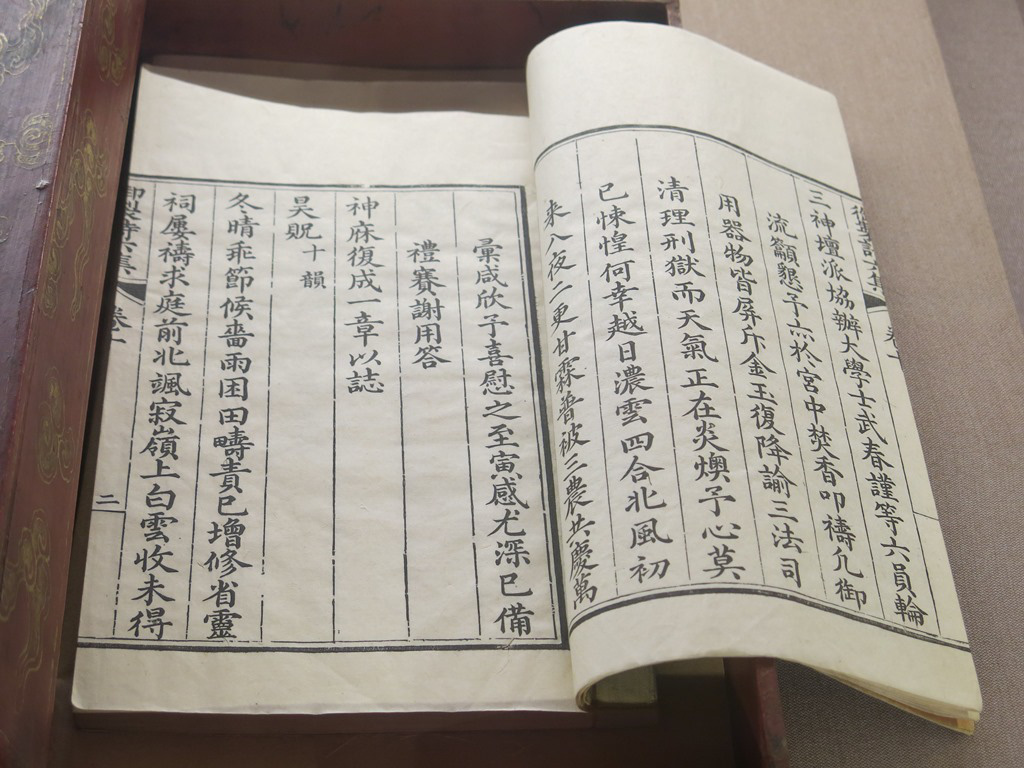 三神壇派協辦大學士武春謹等六員輪
流籲懇予六於宮中焚香叩禱凡御
用器物皆屏斥金玉復降諭三法司
清理刑獄而天氣正在炎燠予心莫
已悚惶何幸越日濃雲四合北風初
來八夜二更甘霖普被三農共慶萬
彙咸欣予喜慰之至寅感尤深已備
禮賽謝用答
神庥復成一章以誌
昊貺十韻
冬晴乖節候嗇雨困田疇責已增修省靈
祠屢禱求庭前北颯寂嶺上白雲收未得
集 卷一 二